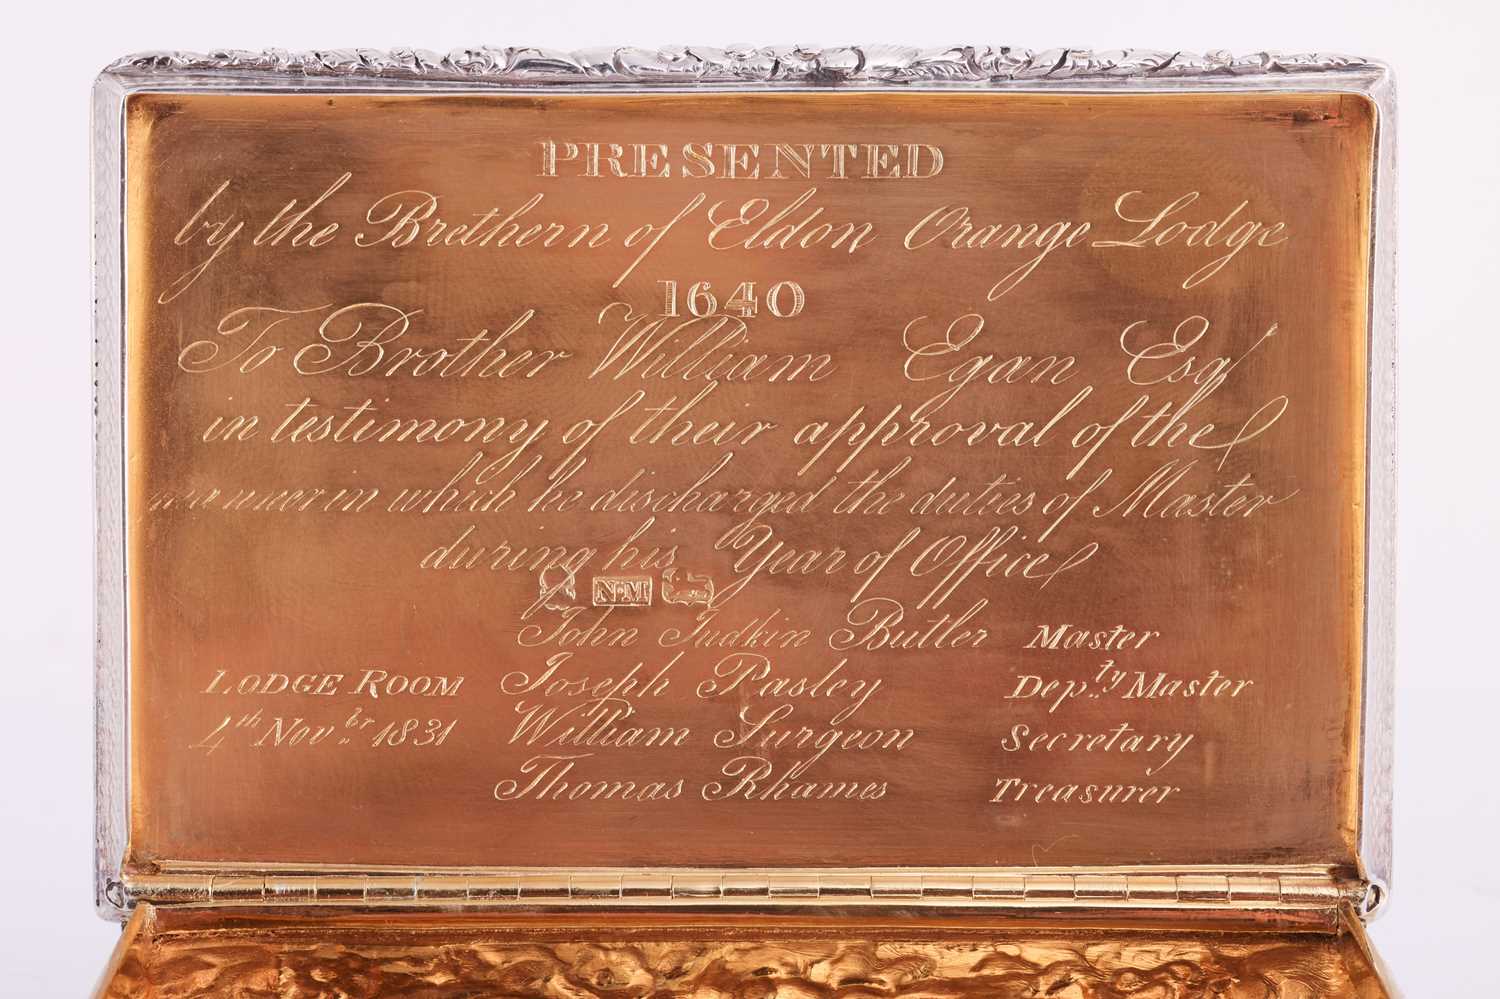 PRESENTED
by the Brethern of Eldon Orange Lodge
1640
To Brother William Egan Esqr
in testimony of their approval of the
manner in which he discharged the duties of Master
during his Year of Office
N·M
John Judkin Butler Master
LODGE ROOM Joseph Pasley Dep.ty Master
4th Nov.br 1831 William Surgeon Secretary
Thomas Rhames Treasurer